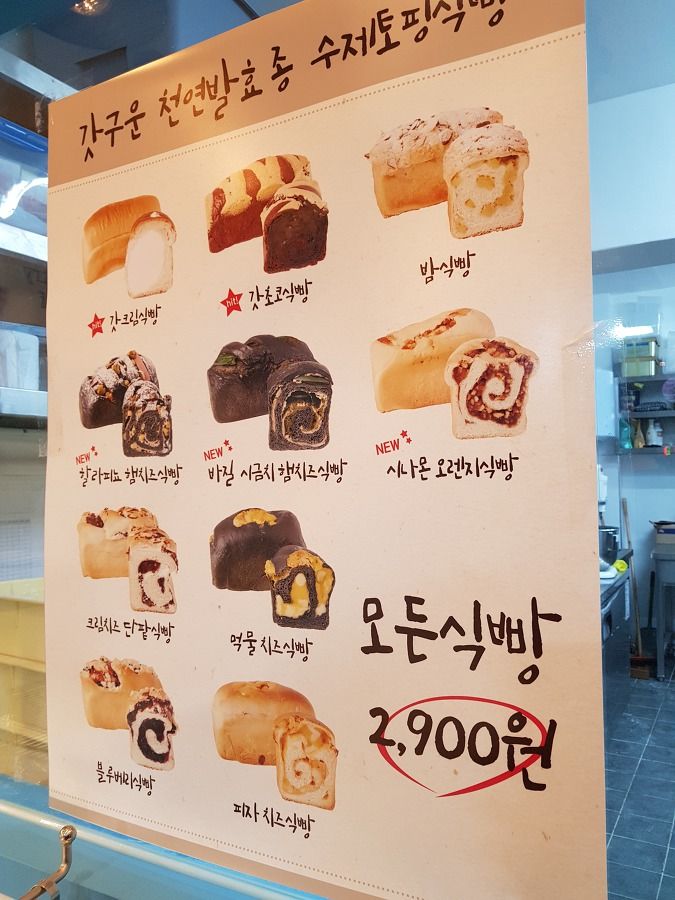 갓구운 천연발효종 수제토핑식빵
hit! 갓크림식빵
hit! 갓초코식빵
밤식빵
NEW
할라피뇨 햄치즈식빵
NEW
바질 시금치햄치즈식빵
NEW
시나몬 오렌지식빵
크림치즈 단팥식빵
먹물치즈식빵
블루베리식빵
피자치즈식빵
모든식빵
2,900원